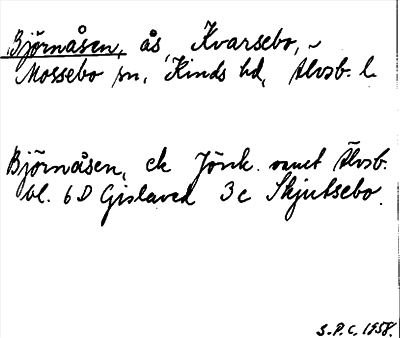 Björnåsen, ås, Kvarsebo,
Mossebo sn, Kinds hd, Älvsb. l.
Björnåsen, ek Jönk. samt Älvsb.
bl. 6 D Gislaved 3 c Skjutsebo.
S.P.C. 1958.